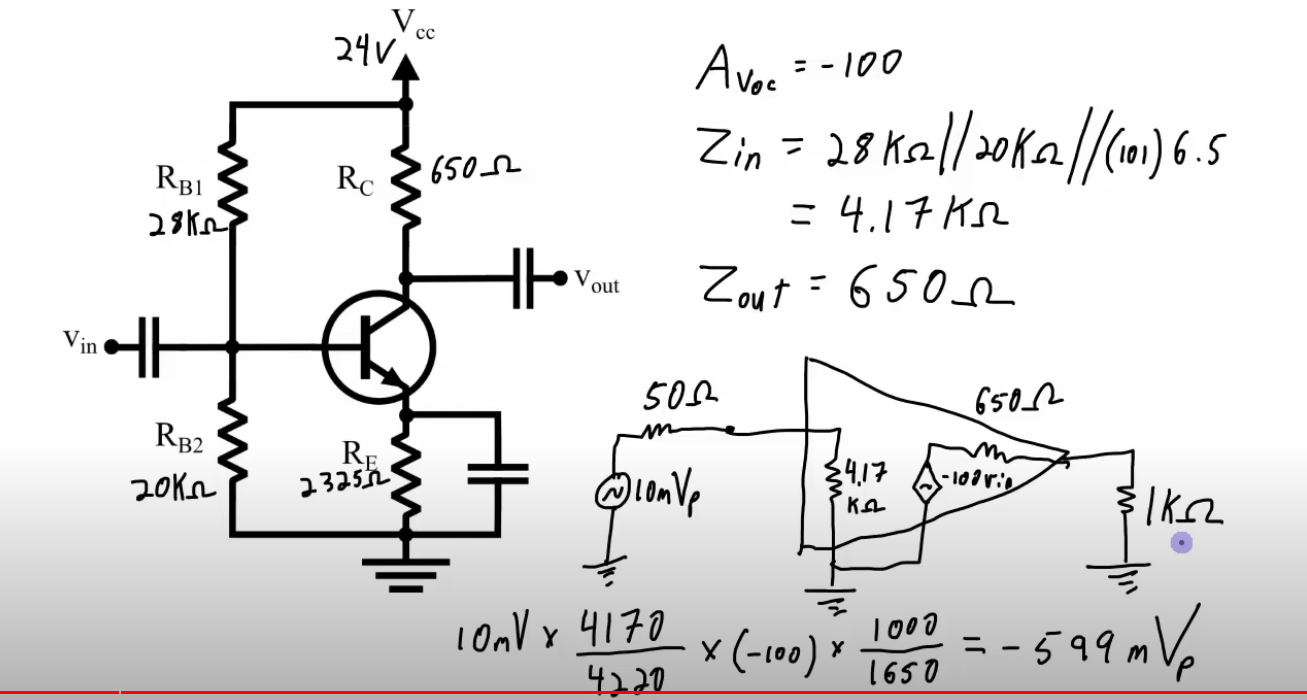 Vcc
24V
RB1
28KΩ
RC
650Ω
Vout
Vin
RB2
20KΩ
RE
2325Ω
AVoc = -100
Zin = 28KΩ//20KΩ//(101)6.5
= 4.17KΩ
Zout = 650Ω
50Ω
10mVp
4.17
KΩ
-100vin
650Ω
1KΩ
10mV x 4170/4220 x (-100) x 1000/1650 = -599mVp